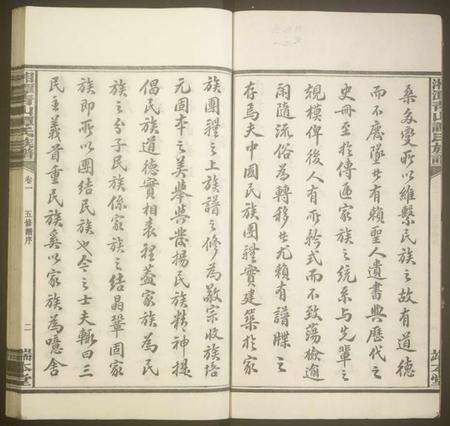 桑多變所以維繫民族之故有道德
而不廢墜者有賴聖人遺書典歷代之
史冊至於傳通家族之統系與先輩之
規模俾後人有所矜式而不致蕩檢逾
閑隨流俗為轉移者尤賴有譜牒之
存焉夫中國民族團體實建築於家
族團體之上族譜之修為敬宗收族培
元固本之美舉與發揚民族精神提
倡民族道德實相表裡蓋家族為民
族之分子民族係家族之結晶鞏固家
族即所以團結民族也今之士夫輒曰三
民主義首重民族奚以家族為噫舍
卷一
五修譜序
二